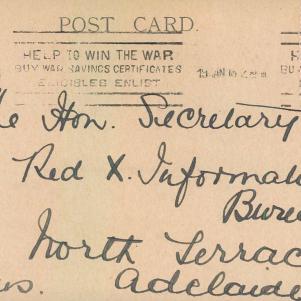 POST CARD.
HELP TO WIN THE WAR
BUY WAR SAVINGS CERTIFICATES
ELIGIBLES ENLIST
he Hon. Secretary
Red X. Informat
Bure
North Terrac
Adelaide